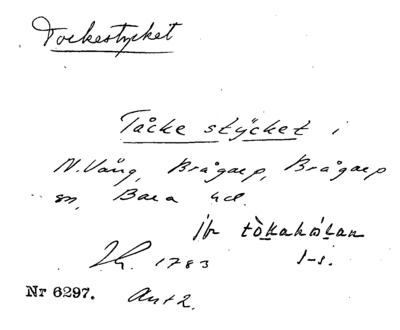 Tockestycket
Tåcke stÿcket i
N. Vång, Brågarp, Brågarp
sn, Bara hd.
jfr tòkahòʹlan
Lh. 1783 l-s.
Nr 6297. Ant 2.